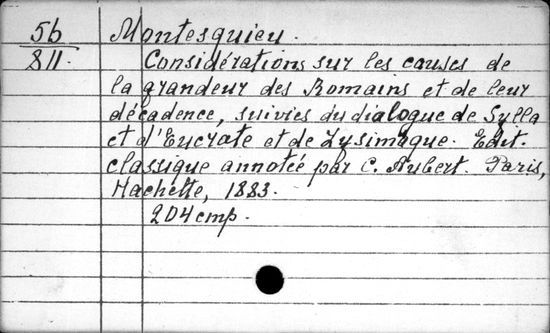 56 Montesquieu.
811. Considérations sur les causes de
la grandeur des Romains et de leur
décadence, suivies du dialogue de Sylla
et d'Eucrate et de Lysimaque. Edit.
classique annotée par C. Aubert. Paris,
Hachette, 1883.
204 стр.